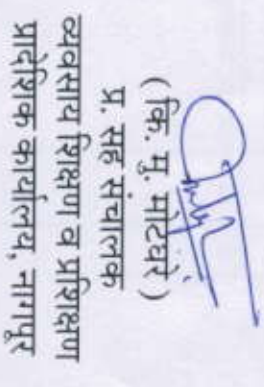 ( कि. मु. मोटघरे )
प्र. सह संचालक
व्यवसाय शिक्षण व प्रशिक्षण
प्रादेशिक कार्यालय, नागपूर